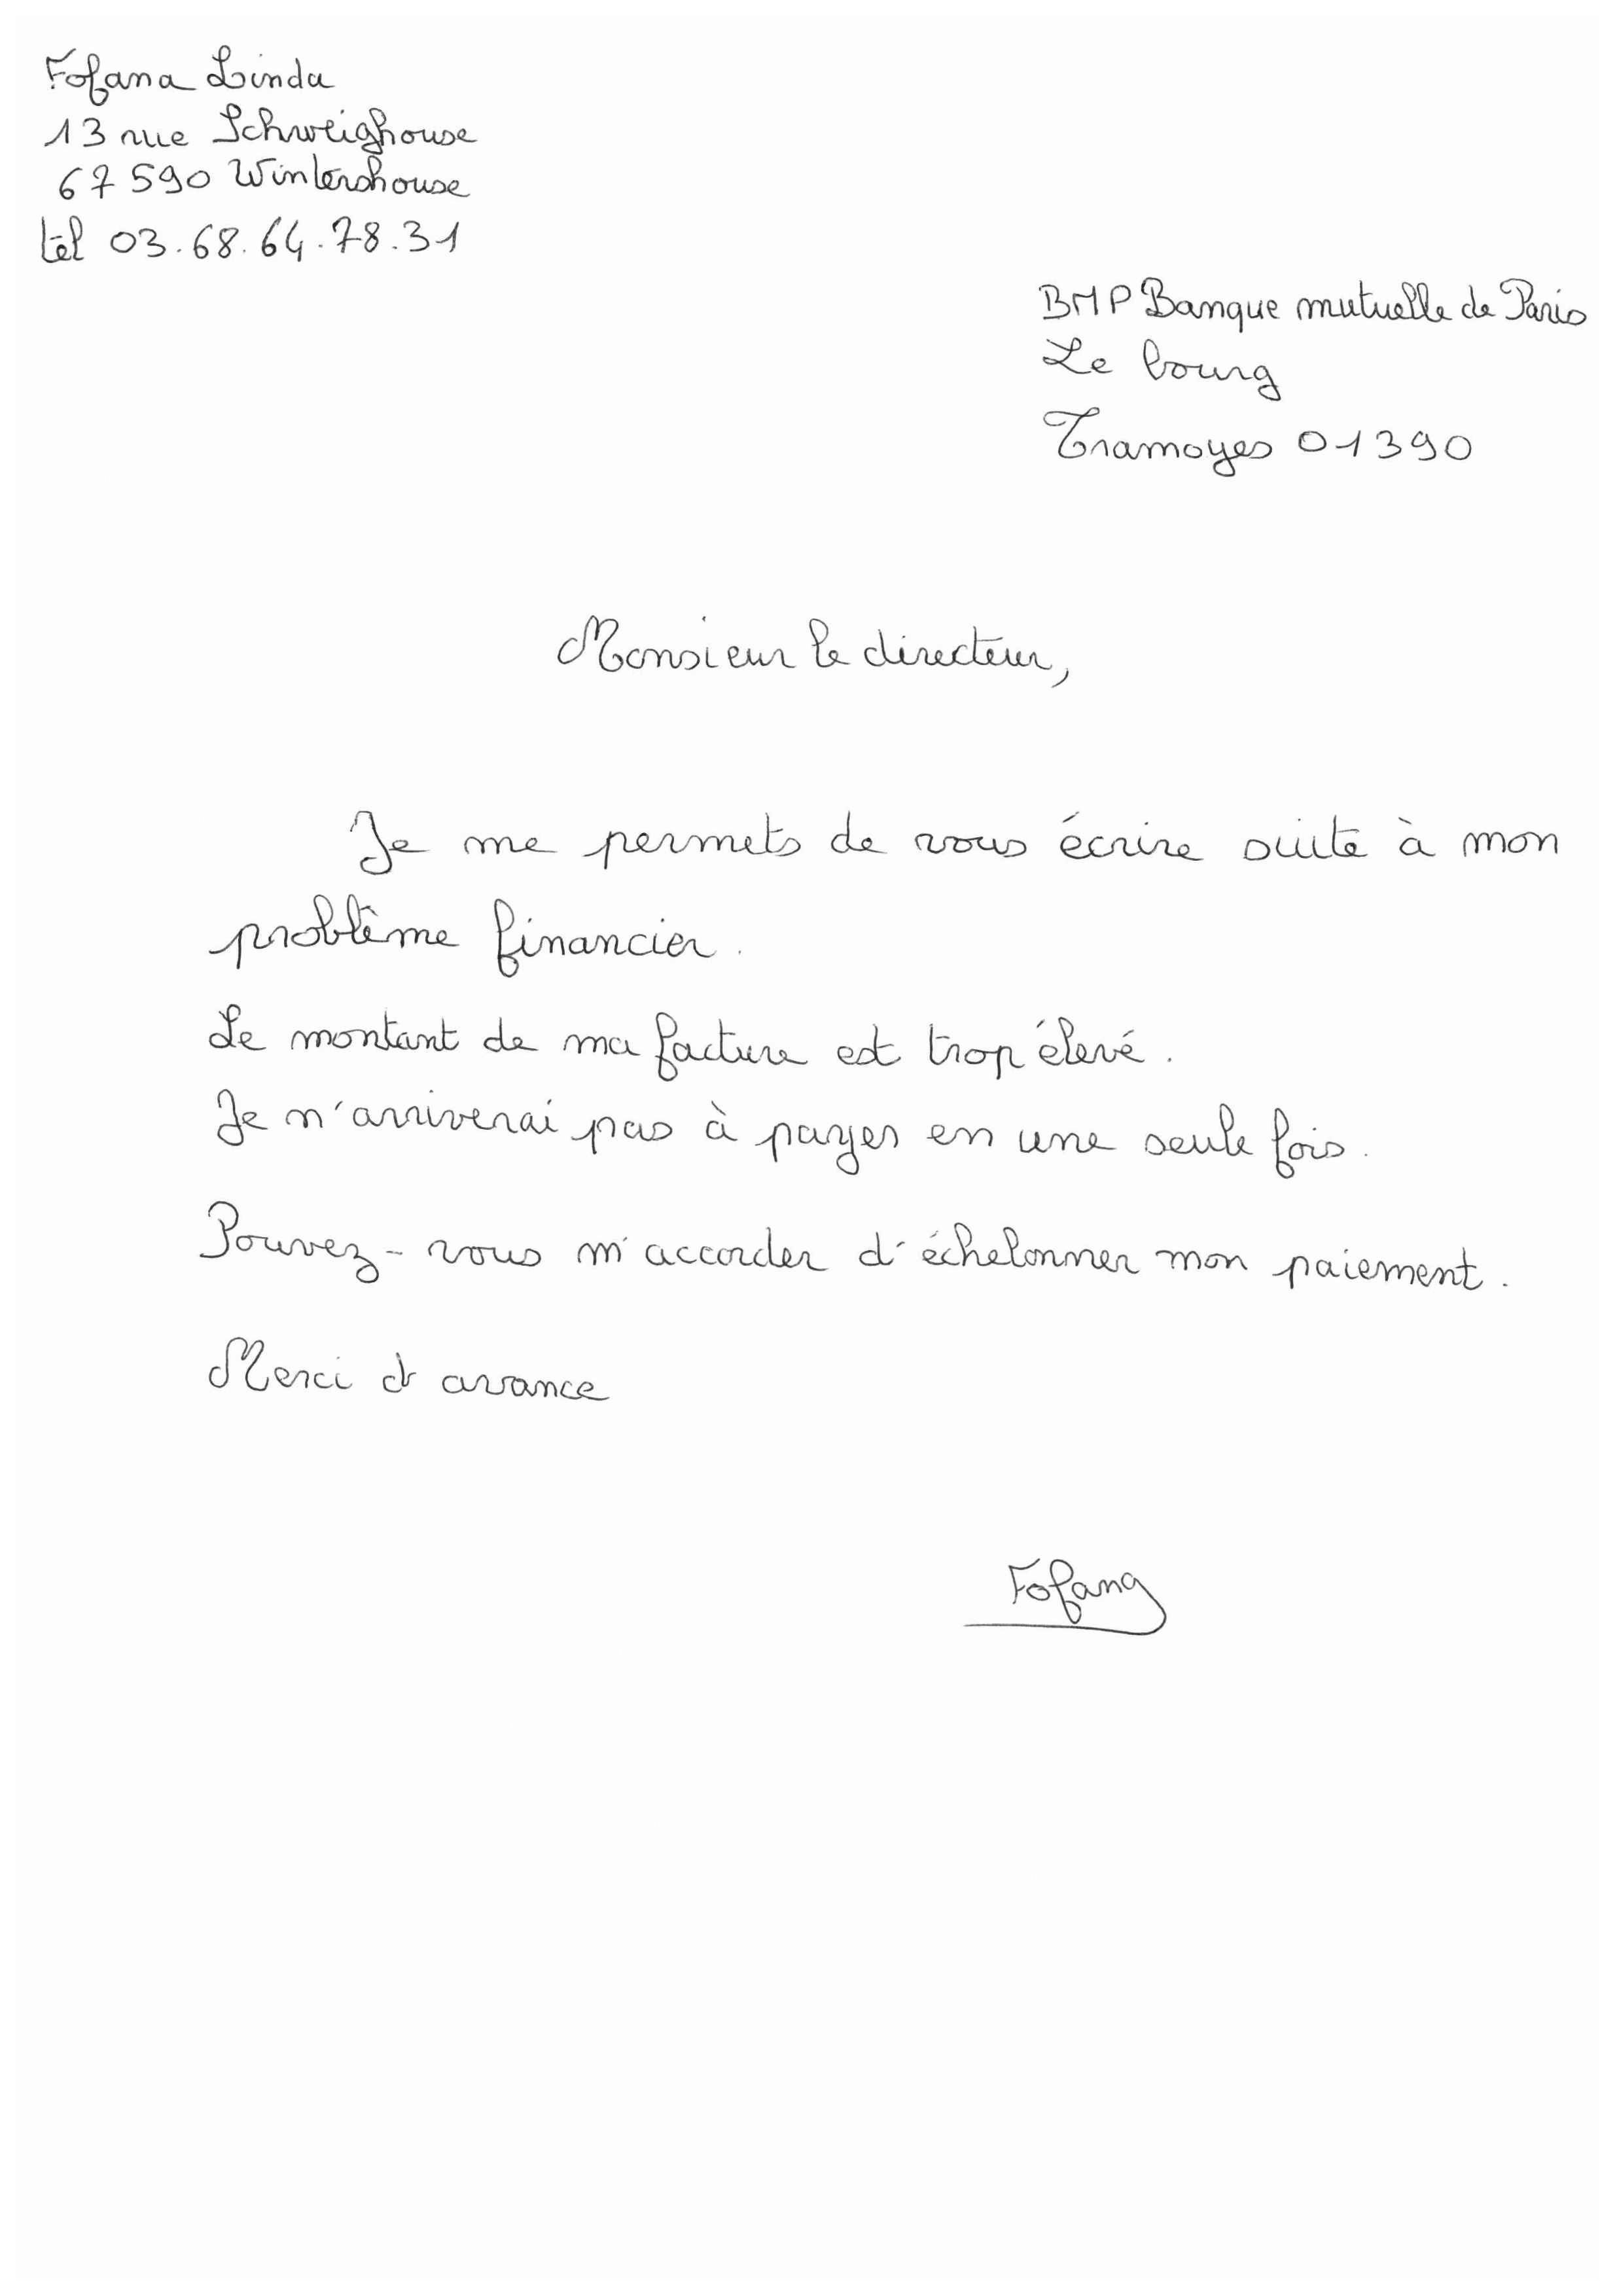 Fofana Linda
13 rue Schweighouse
67590 Wintershouse
tél 03.68.64.78.31
BMP Banque mutuelle de Paris
Le bourg
Tramoyes 01390
Monsieur le directeur,
Je me permets de vous écrire suite à mon
problème financier.
Le montant de ma facture est trop élevé.
Je n'arriverai pas à payer en une seule fois.
Pouvez-vous m'accorder d'échelonner mon paiement.
Merci d'avance
Fofana